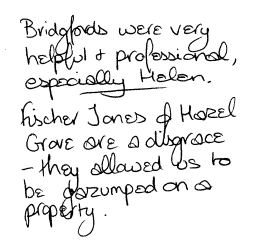 Bridgfords were very
helpful & professional,
especially Helen.
Fischer Jones of Hazel
Grove are a disgrace
- they allowed us to
be gazumped on a
property.